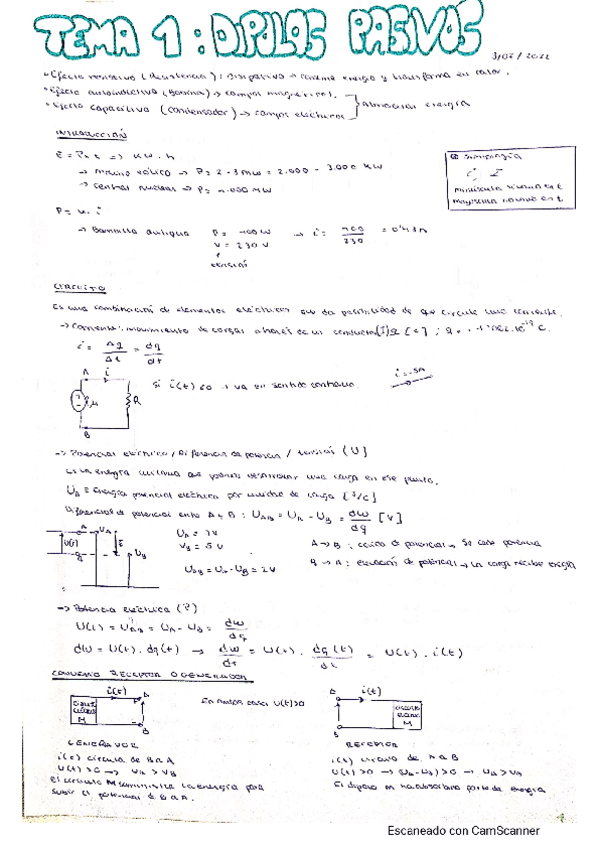 TEMA 1: DIPOLOS PASIVOS
3/02/2022
• Efecto resistivo (Resistencia): disipativo → consume energía y transforma en calor.
• Efecto autoinductivo (Bobina) → campos magnéticos.
• Efecto capacitivo (condensador) → campos eléctricos
Almacenar energía
INTRODUCCIÓN
E = P · t => KW · h
→ molino eólico → P = 2-3 MW = 2.000 - 3.000 KW
→ central nuclear → P = 1.000 MW
Simbología
i, I
P = u · i
→ Bombilla antigua P = 100 W → i = 100/230 = 0'43A
V = 230 V
tensión
CIRCUITO
Es una combinación de elementos eléctricos que da posibilidad de que circule una corriente.
→ Corriente: movimiento de cargas a través de un conductor
i = Δq/Δt = dq/dt
A i
R
B
Si i(t) < 0 → va en sentido contrario.
i = -5A
→ Potencial eléctrico / Diferencia de potencial / tensión (U)
Es la energía
una carga en ese punto.
UA = Energía potencial eléctrica por unidad de carga [J/C]
Diferencia de potencial entre A y B: UAB = UA - UB = dW/dq [V]
A UA
B UB
UA = 7V
VB = 5V
UAB = UA - UB = 2V
A → B: caída de potencial → Se cede potencia
B → A: elevación de potencial → La carga recibe energía
→ Potencia eléctrica (P)
U(t) = UAB = UA - UB = dW/dq
dW = U(t) · dq(t) → dW/dt = U(t) · dq(t)/dt = U(t) · i(t)
CONVENIO RECEPTOR O GENERADOR
i(t) A
M
B
En ambos casos U(t)>0
A i(t)
M
B
GENERADOR
i(t) circula de B a A
U(t) > 0 → UA > VB
El circuito M suministra la energía para
subir el potencial de B a A.
RECEPTOR
i(t) circula de A a B
U(t) > 0 → (UA - UB) > 0 →
El dipolo M ha absorbido parte de energía
Escaneado con CamScanner